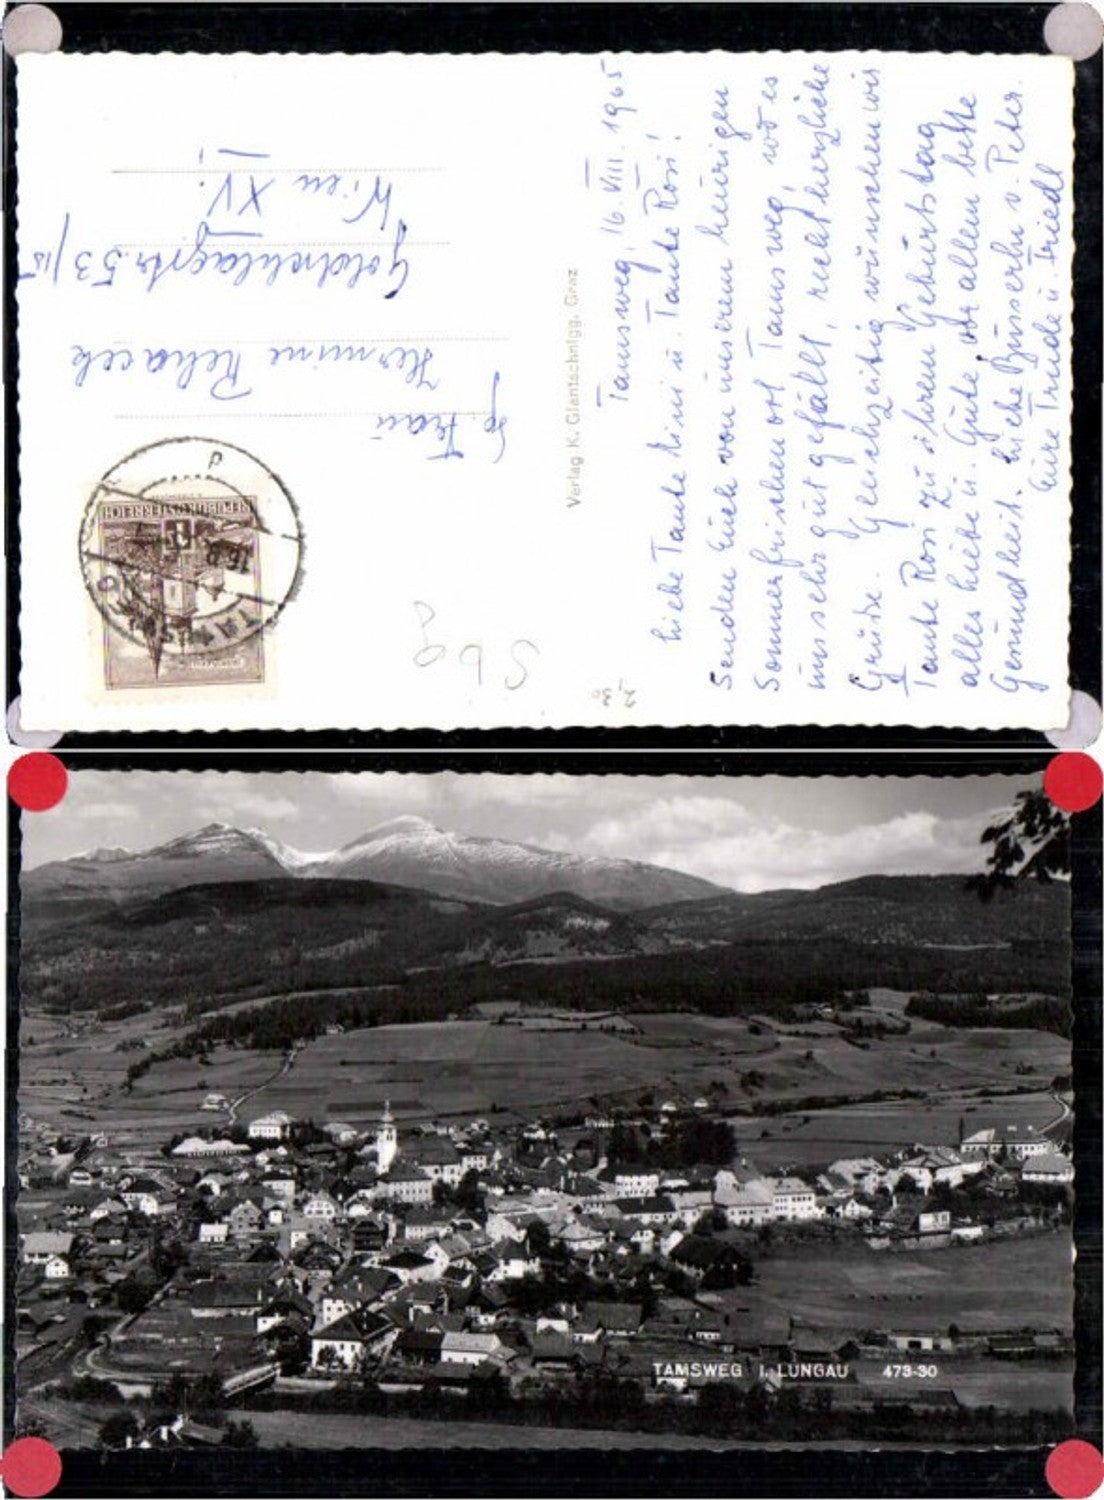 Tamsweg, 16. VIII. 1965
Liebe Tante Mini u. Tante Rosi!
Senden Euch von unserem heurigen
Sommerfrischenort Tamsweg, wo es
uns sehr gut gefällt, recht herzliche
Grüße. Gleichzeitig wünschen wir
Tante Rosi zu ihrem Geburtstag
alles Liebe u. Gute, vor allem beste
Gesundheit. Liebe Busserln v. Peter.
Eure Trude u. Friedl
Verlag K. Glantschnigg, Graz
Frau
Hermine
Goldschlagstr. 53/15
Wien XV.
REPUBLIK ÖSTERREICH
TAMSWEG
Sbg
2,30
TAMSWEG I. LUNGAU 473-30